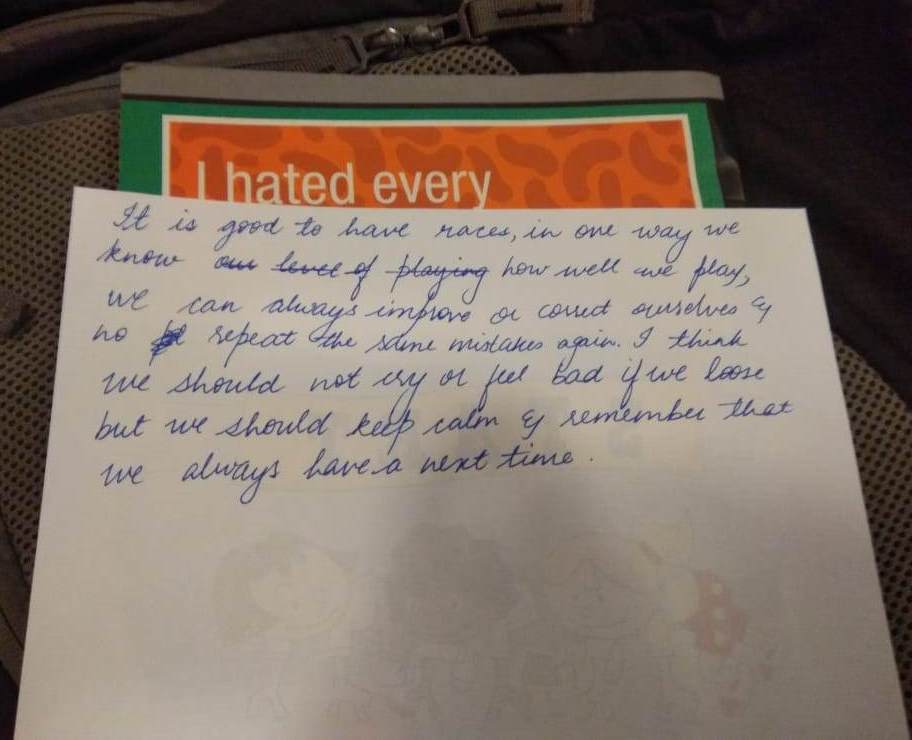 I hated every
It is good to have races, in one way we
know our level of playing how well we play,
we can always improve or correct ourselves &
no repeat the same mistakes again. I think
we should not cry or feel bad if we loose
but we should keep calm & remember that
we always have a next time.